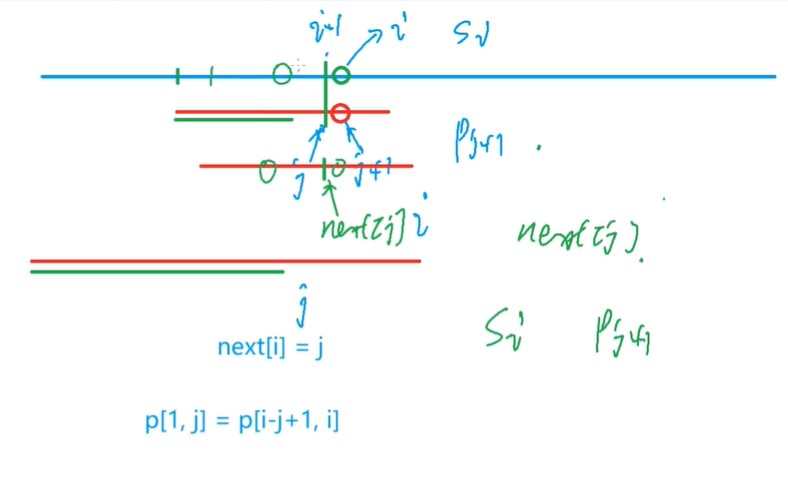 i-1 i Si
Pj+1 .
j j+1
next[j] i next[j].
j
Si Pj+1
next[i] = j
p[1, j] = p[i-j+1, i]